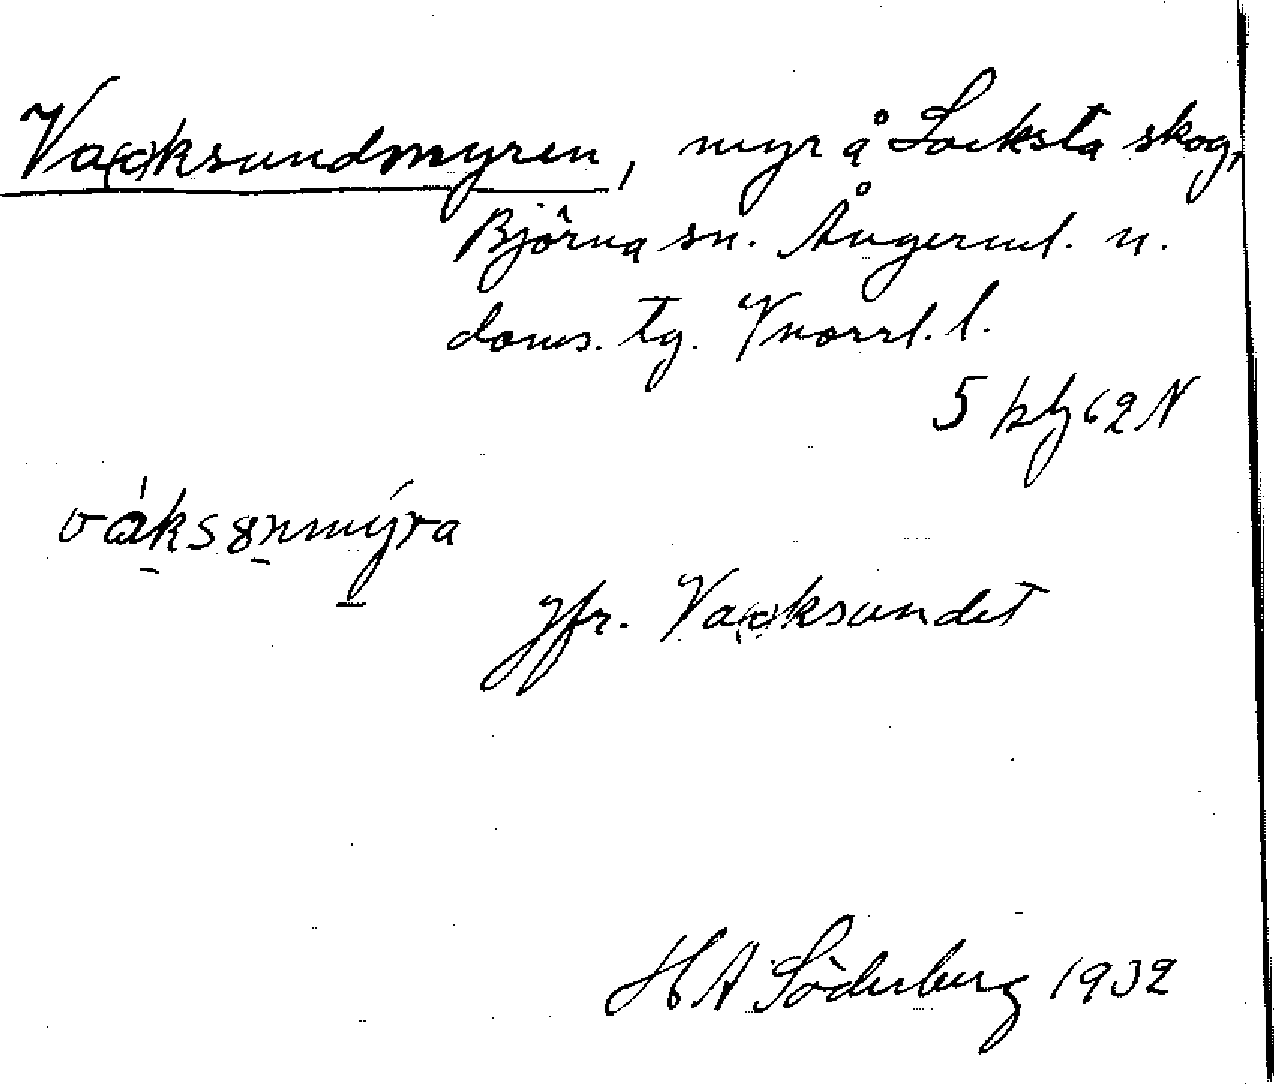 Va(c)ksundmyren, myr å Locksta skog,
Björna sn. Ångerml. n.
doms. tg. Vnorrl. l.
5 62 N
Jfr. Va(c)ksundet
H A Söderberg 1932